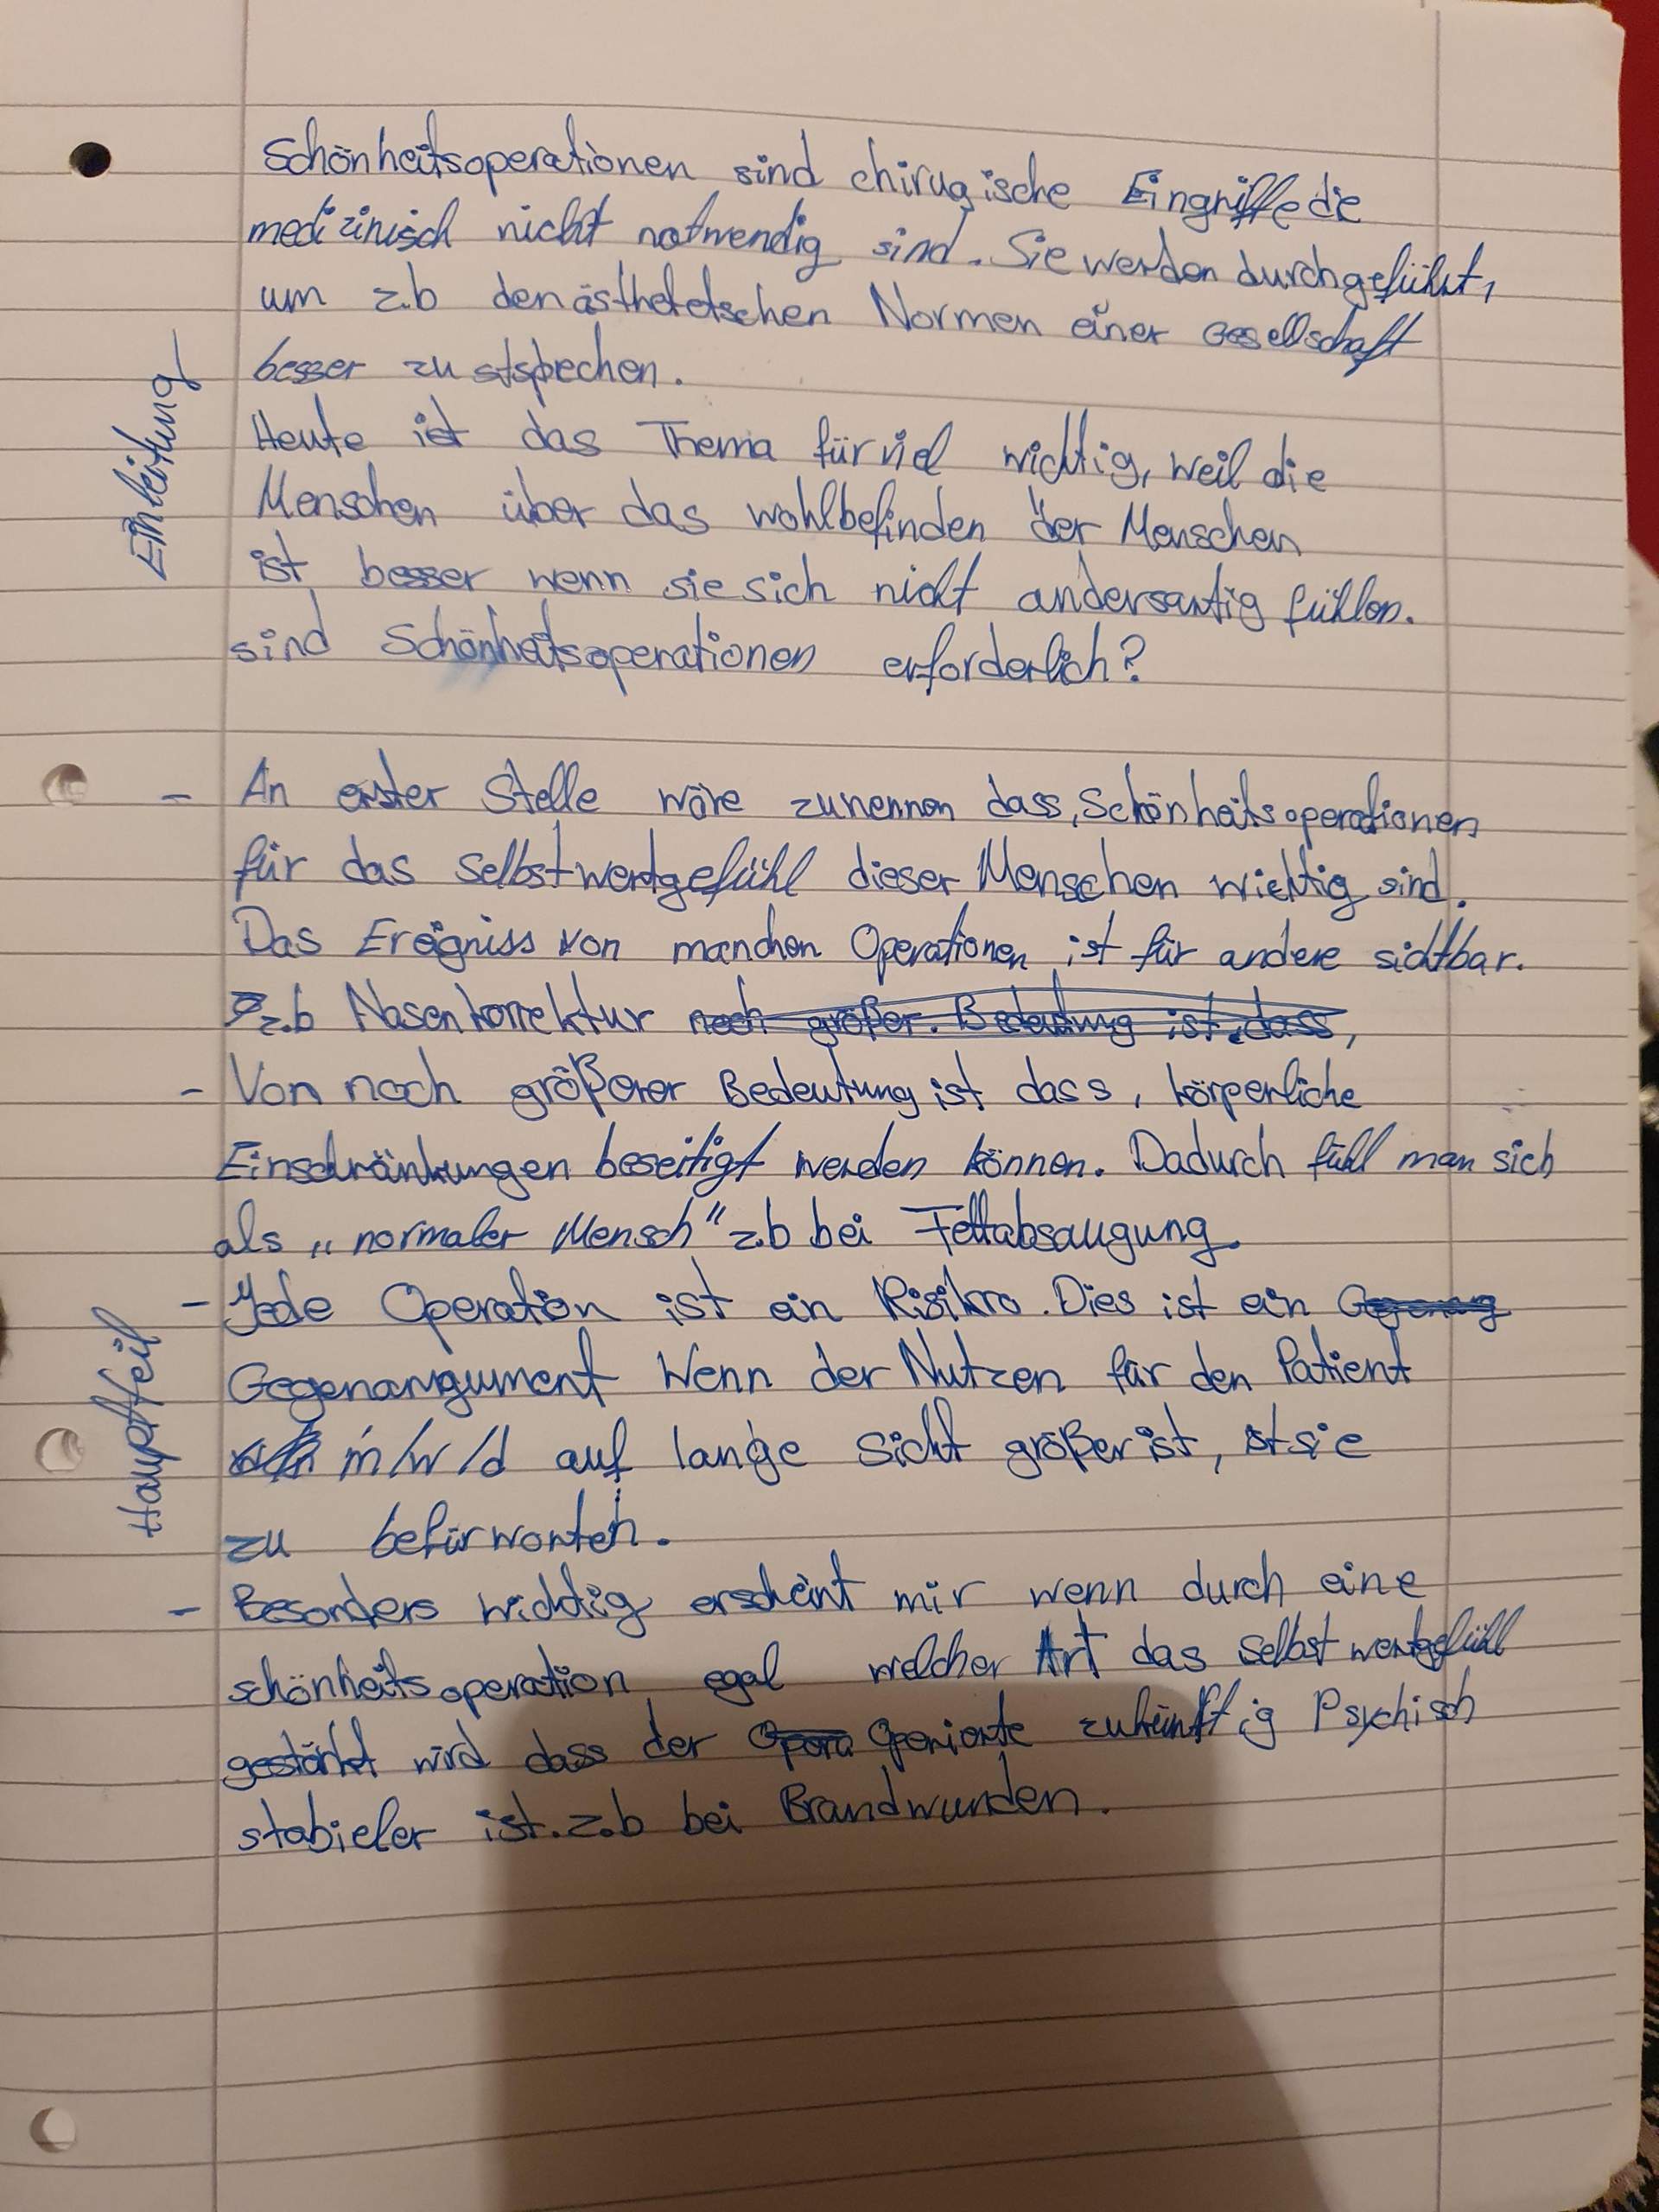 Schönheitsoperationen sind chirugische Eingriffe die
medizinisch nicht notwendig sind. Sie werden durchgeführt,
um z.b den ästhetetschen Normen einer Gesellschaft
besser zu
Heute ist das Thema für viel wichtig, weil die
Menschen über das wohlbefinden der Menschen
ist besser wenn sie sich nicht andersartig fühlen.
sind Schönheitsoperationen erforderlich?
Einleitung
- An erster Stelle wäre zunennen dass, Schönheitsoperationen
für das selbstwertgefühl dieser Menschen wichtig sind.
Das Ereigniss von manchen Operationen ist für andere sichtbar.
z.b Nasenkorrektur noch großer. Bedeutung ist, dass,
- Von noch größerer Bedeutung ist dass, körperliche
Einschränkungen beseitigt werden können. Dadurch fühl man sich
als „normaler Mensch" z.b bei Fettabsaugung.
- Jede Operation ist ein Risikro. Dies ist ein
Gegenargument Wenn der Nutzen für den Patient
m/w/d auf lange Sicht größer ist, ist sie
zu befürworten.
- Besonders wichtig erscheint mir wenn durch eine
schönheitsoperation egal welcher Art das selbstwertgefühl
gestärkt wird dass der Opera Operierte zukünftig Psychisch
stabieler ist. z.b bei Brandwunden.
Hauptteil